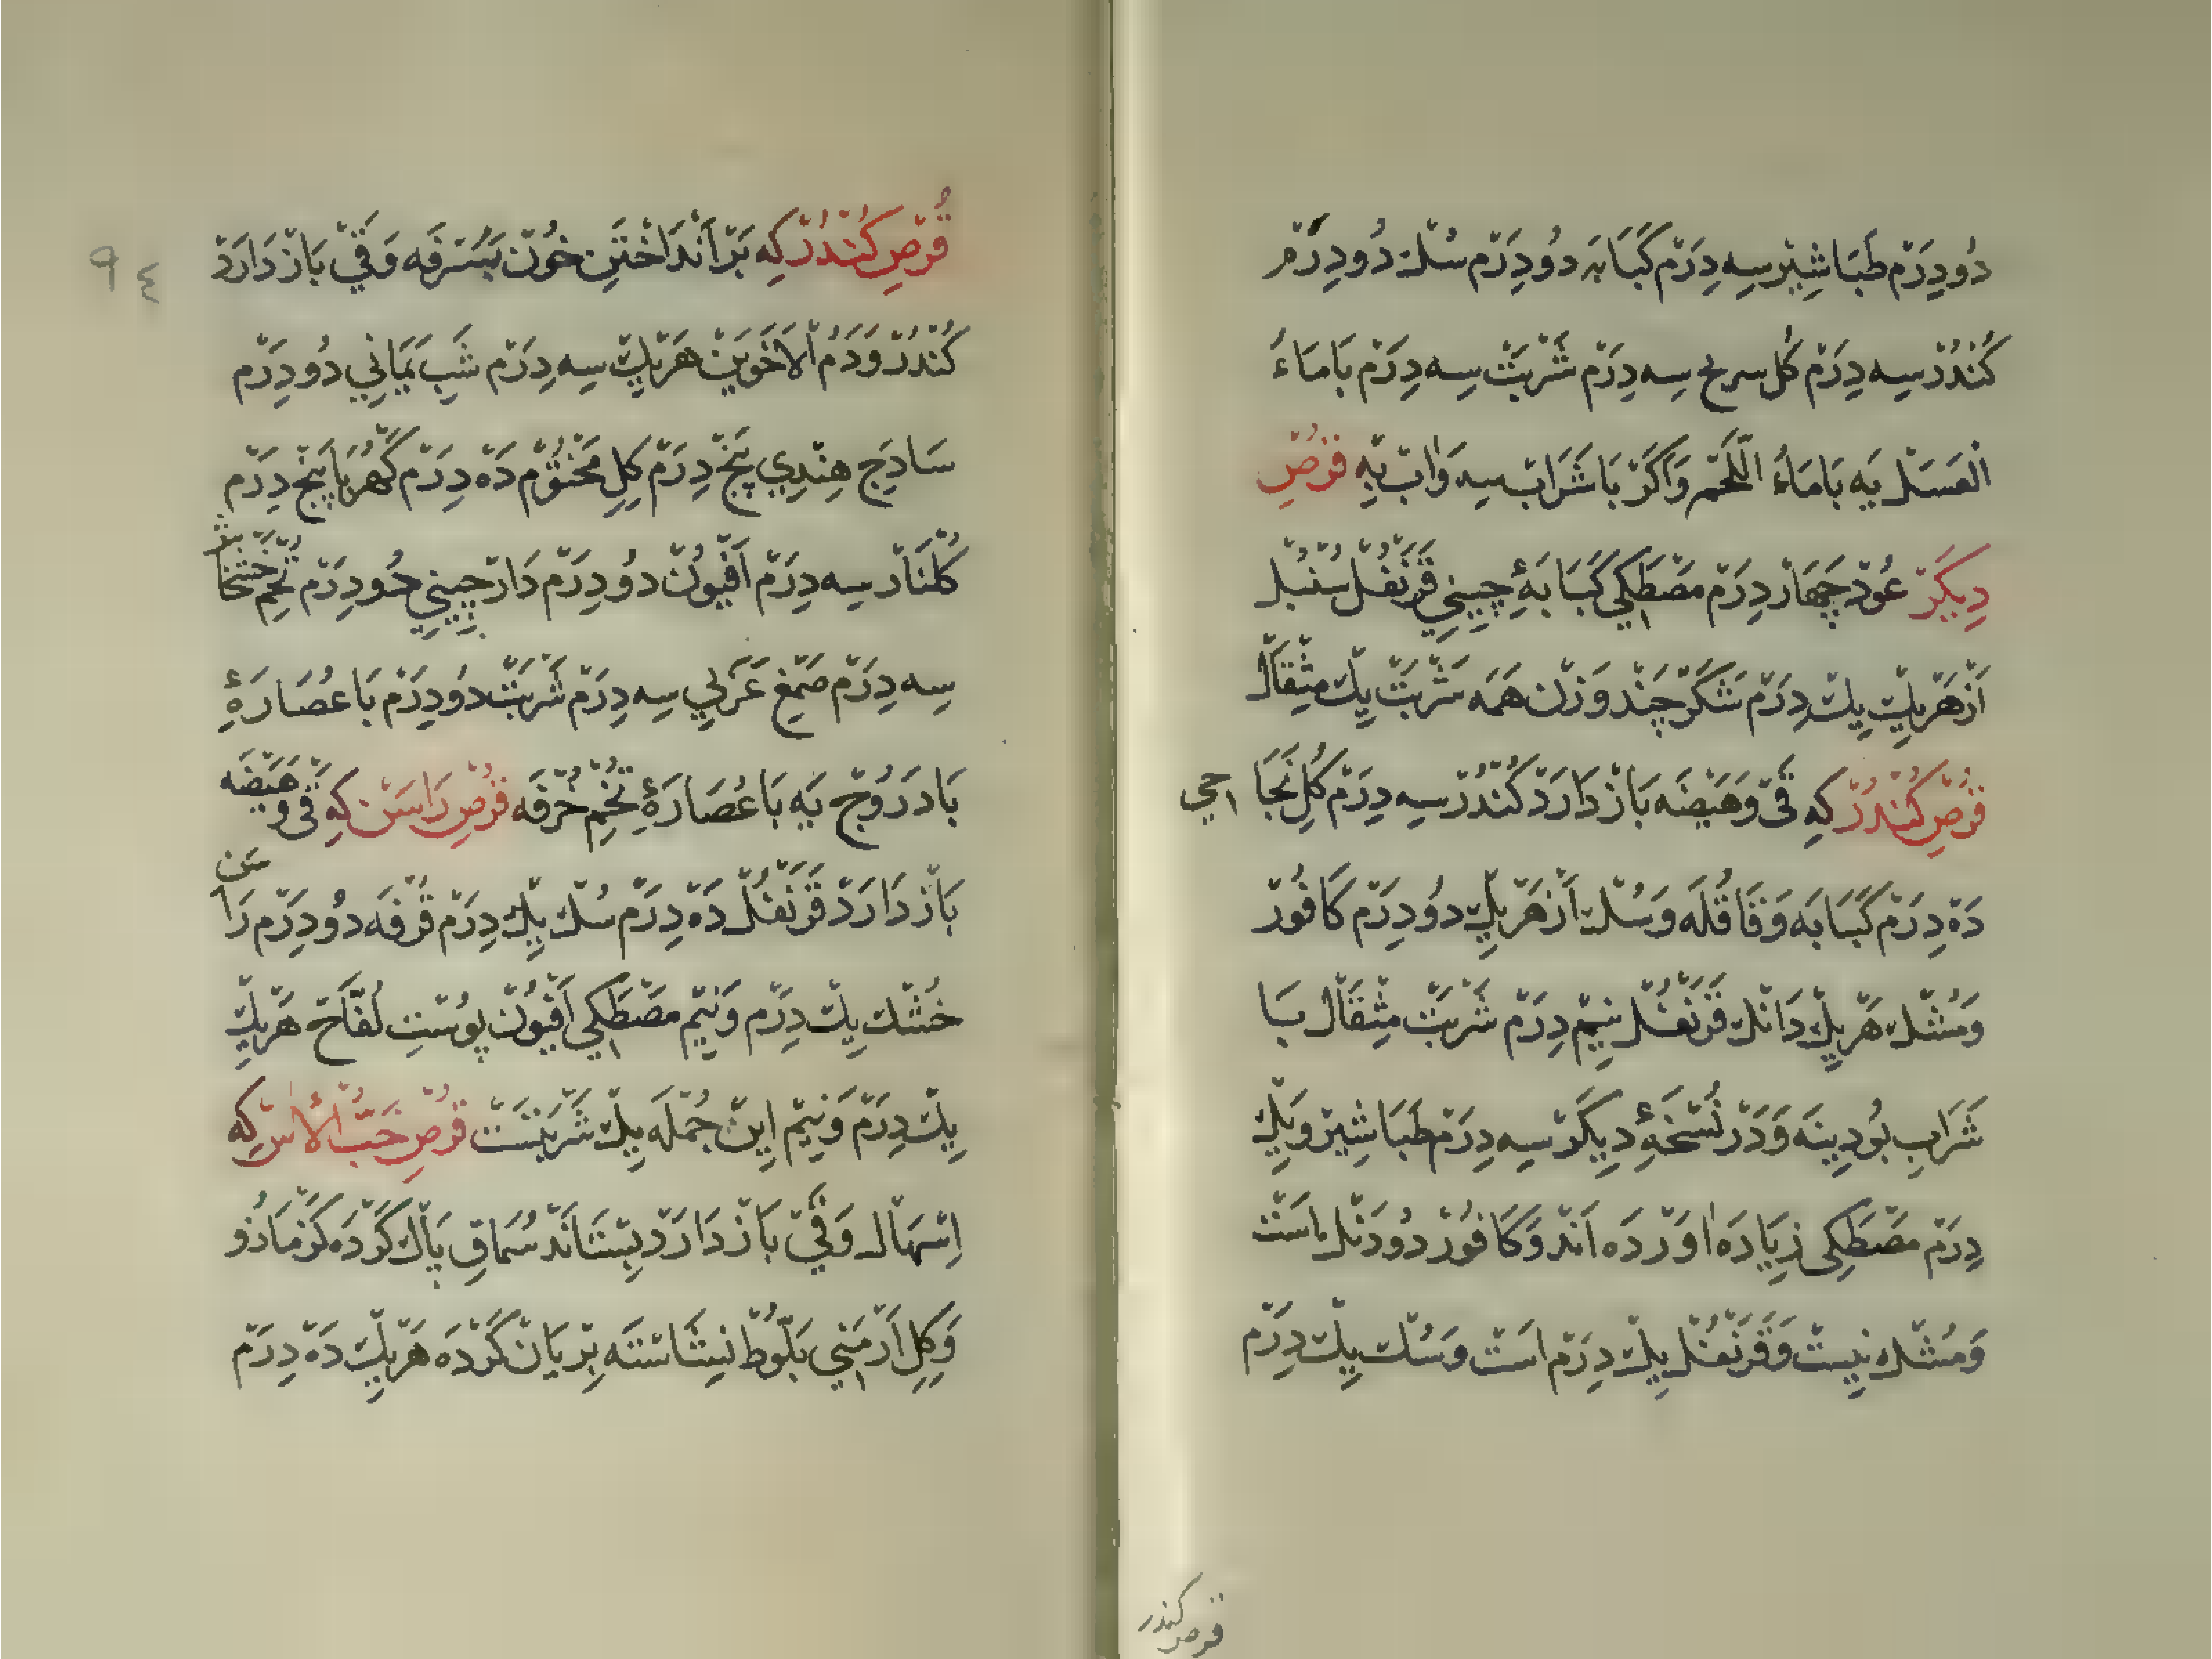 دُو دِرَمْ طَبَاشِيْر سِه دِرَمْ كَبَابَه دُو دِرَمْ سُك دُو دِرَمْ
كُنْدُرْ سِه دِرَمْ گُل سرخ سِه دِرَمْ شَرْبَتْ سِه دِرَمْ بَا مَاءُ
الْعَسَل بَه بَا مَاءُ اللَّحْم وَاَگَرْ بَا شَرَابْ سِه وَابْ بِه قُرْصِ
دِيگَرْ عُوْد چَهَارْ دِرَمْ مَصْطَكِي كَبَابَهٔ چِينِي قَرَنْفُلْ سُنْبُل
اَزْ هَرْيِكْ يِكْ دِرَمْ شَكَرْ چَنْد وَزْن هَمَه شَرْبَتْ يِكْ مِثْقَالْ
قُرْصِ كُنْدُرْ كِه قَيْ وَهَيْضَه بَازْ دَارَدْ كُنْدُرْ سِه دِرَمْ گُلِ نَجَاحِي
دَهْ دِرَمْ كَبَابَه وَقَاقُلَه وَسُك اَزْ هَرْيِكْ دُو دِرَمْ كَافُورْ
وَمُشْك هَرْيِكْ دَانْك قَرَنْفُلْ نِيْم دِرَمْ شَرْبَتْ مِثْقَالْ بَا
شَرَابِ بُودِينَه وَدَرْ نُسْخَهٔ دِيگَرْ سِه دِرَمْ طَبَاشِيْر وَيِكْ
دِرَمْ مَصْطَكِي زِيَادَه اوَرْدَه اَنْد وَكَافُورْ دُو دَنْك اسَتْ
وَمُشْك نِيسْتْ وَقَرَنْفُلْ يِكْ دِرَمْ اسَتْ وَسُك يِكْ دِرَمْ
قرص كندر
٩٤
قُرْصِ كُنْدُرْ كِه بَرْ اَنْدَاخْتَنِ خُونْ بَسُرْفَه وَقَيْ بَازْ دَارَدْ
كُنْدُرْ وَدَمُ الاَخَوَيْنْ هَرْيِكْ سِه دِرَمْ شَبِّ يَمَانِي دُو دِرَمْ
سَادِجِ هِنْدِي پَنْجْ دِرَمْ گِلِ مَخْتُوْمْ دَهْ دِرَمْ كَهْرُبَا پَنْج دِرَمْ
گُلْنَارْ سِه دِرَمْ اَفْيُونْ دُو دِرَمْ دَارْچِيْنِي دُو دِرَمْ تُخْمِ خَشْخَاش
سِه دِرَمْ صَمْغِ عَرَبِي سِه دِرَمْ شَرْبَتْ دُو دِرَمْ بَا عُصَارَهٔ
بَادَرُوْجْ يَه بَا عُصَارَهٔ تُخْمِ خُرْفَه قُرْصِ رَاسَنْ كِه قَيْ وَهَيْضَه
بَازْ دَارَدْ قَرَنْفُلْ دَهْ دِرَمْ سُك يِكْ دِرَمْ قُرْفَه دُو دِرَمْ رَاسَن
خُشْك يِكْ دِرَمْ وَنِيْم مَصْطَكِي اَفْيُونْ پُوسْتِ لُفَّاحْ هَرْيِكْ
يِكْ دِرَمْ وَنِيْم اِينْ جُمْلَه يِكْ شَرْبَتَسْتْ قُرْصِ حَبُّ الْأَاسْ كِه
اِسْهَالْ وَقَيْ بَازْ دَارَدْ بِسْتَانَنْد سُمَاقِ پَاكْ كَرْدَه گَزْمَازُو
وَگِلِ اَرْمَنِي بَلُّوْط نِشَاسْتَه بِرْيَانْ كَرْدَه هَرْيِكْ دَهْ دِرَمْ